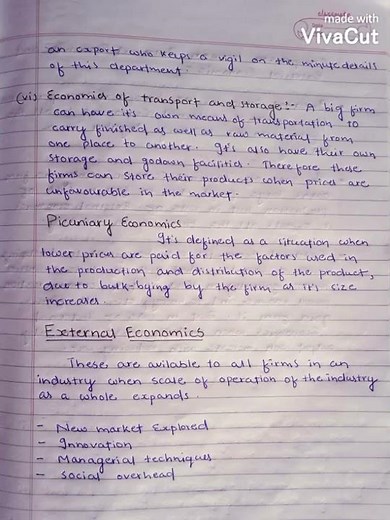 made with
VivaCut
an export who keeps a vigil on the minute details
of this department.
(vi) Economies of transport and storage:- A big firm
can have it's own means of transportation to
carry finished as well as raw material from
one place to another. It's also have their own
storage and godown facilities. Therefore these
firms can store their products when prices are
unfavourable in the market.
Picuniary Economics
It's defined as a situation when
lower prices are paid for the factors used in
the production and distribution of the product,
due to bulk-bying by the firm as it's size
increases.
External Economics
These are avilable to all firms in an
industry when scale of operation of the industry
as a whole expands.
- New market Explored
- Innovation
- Managerial techniques
- Social overhead